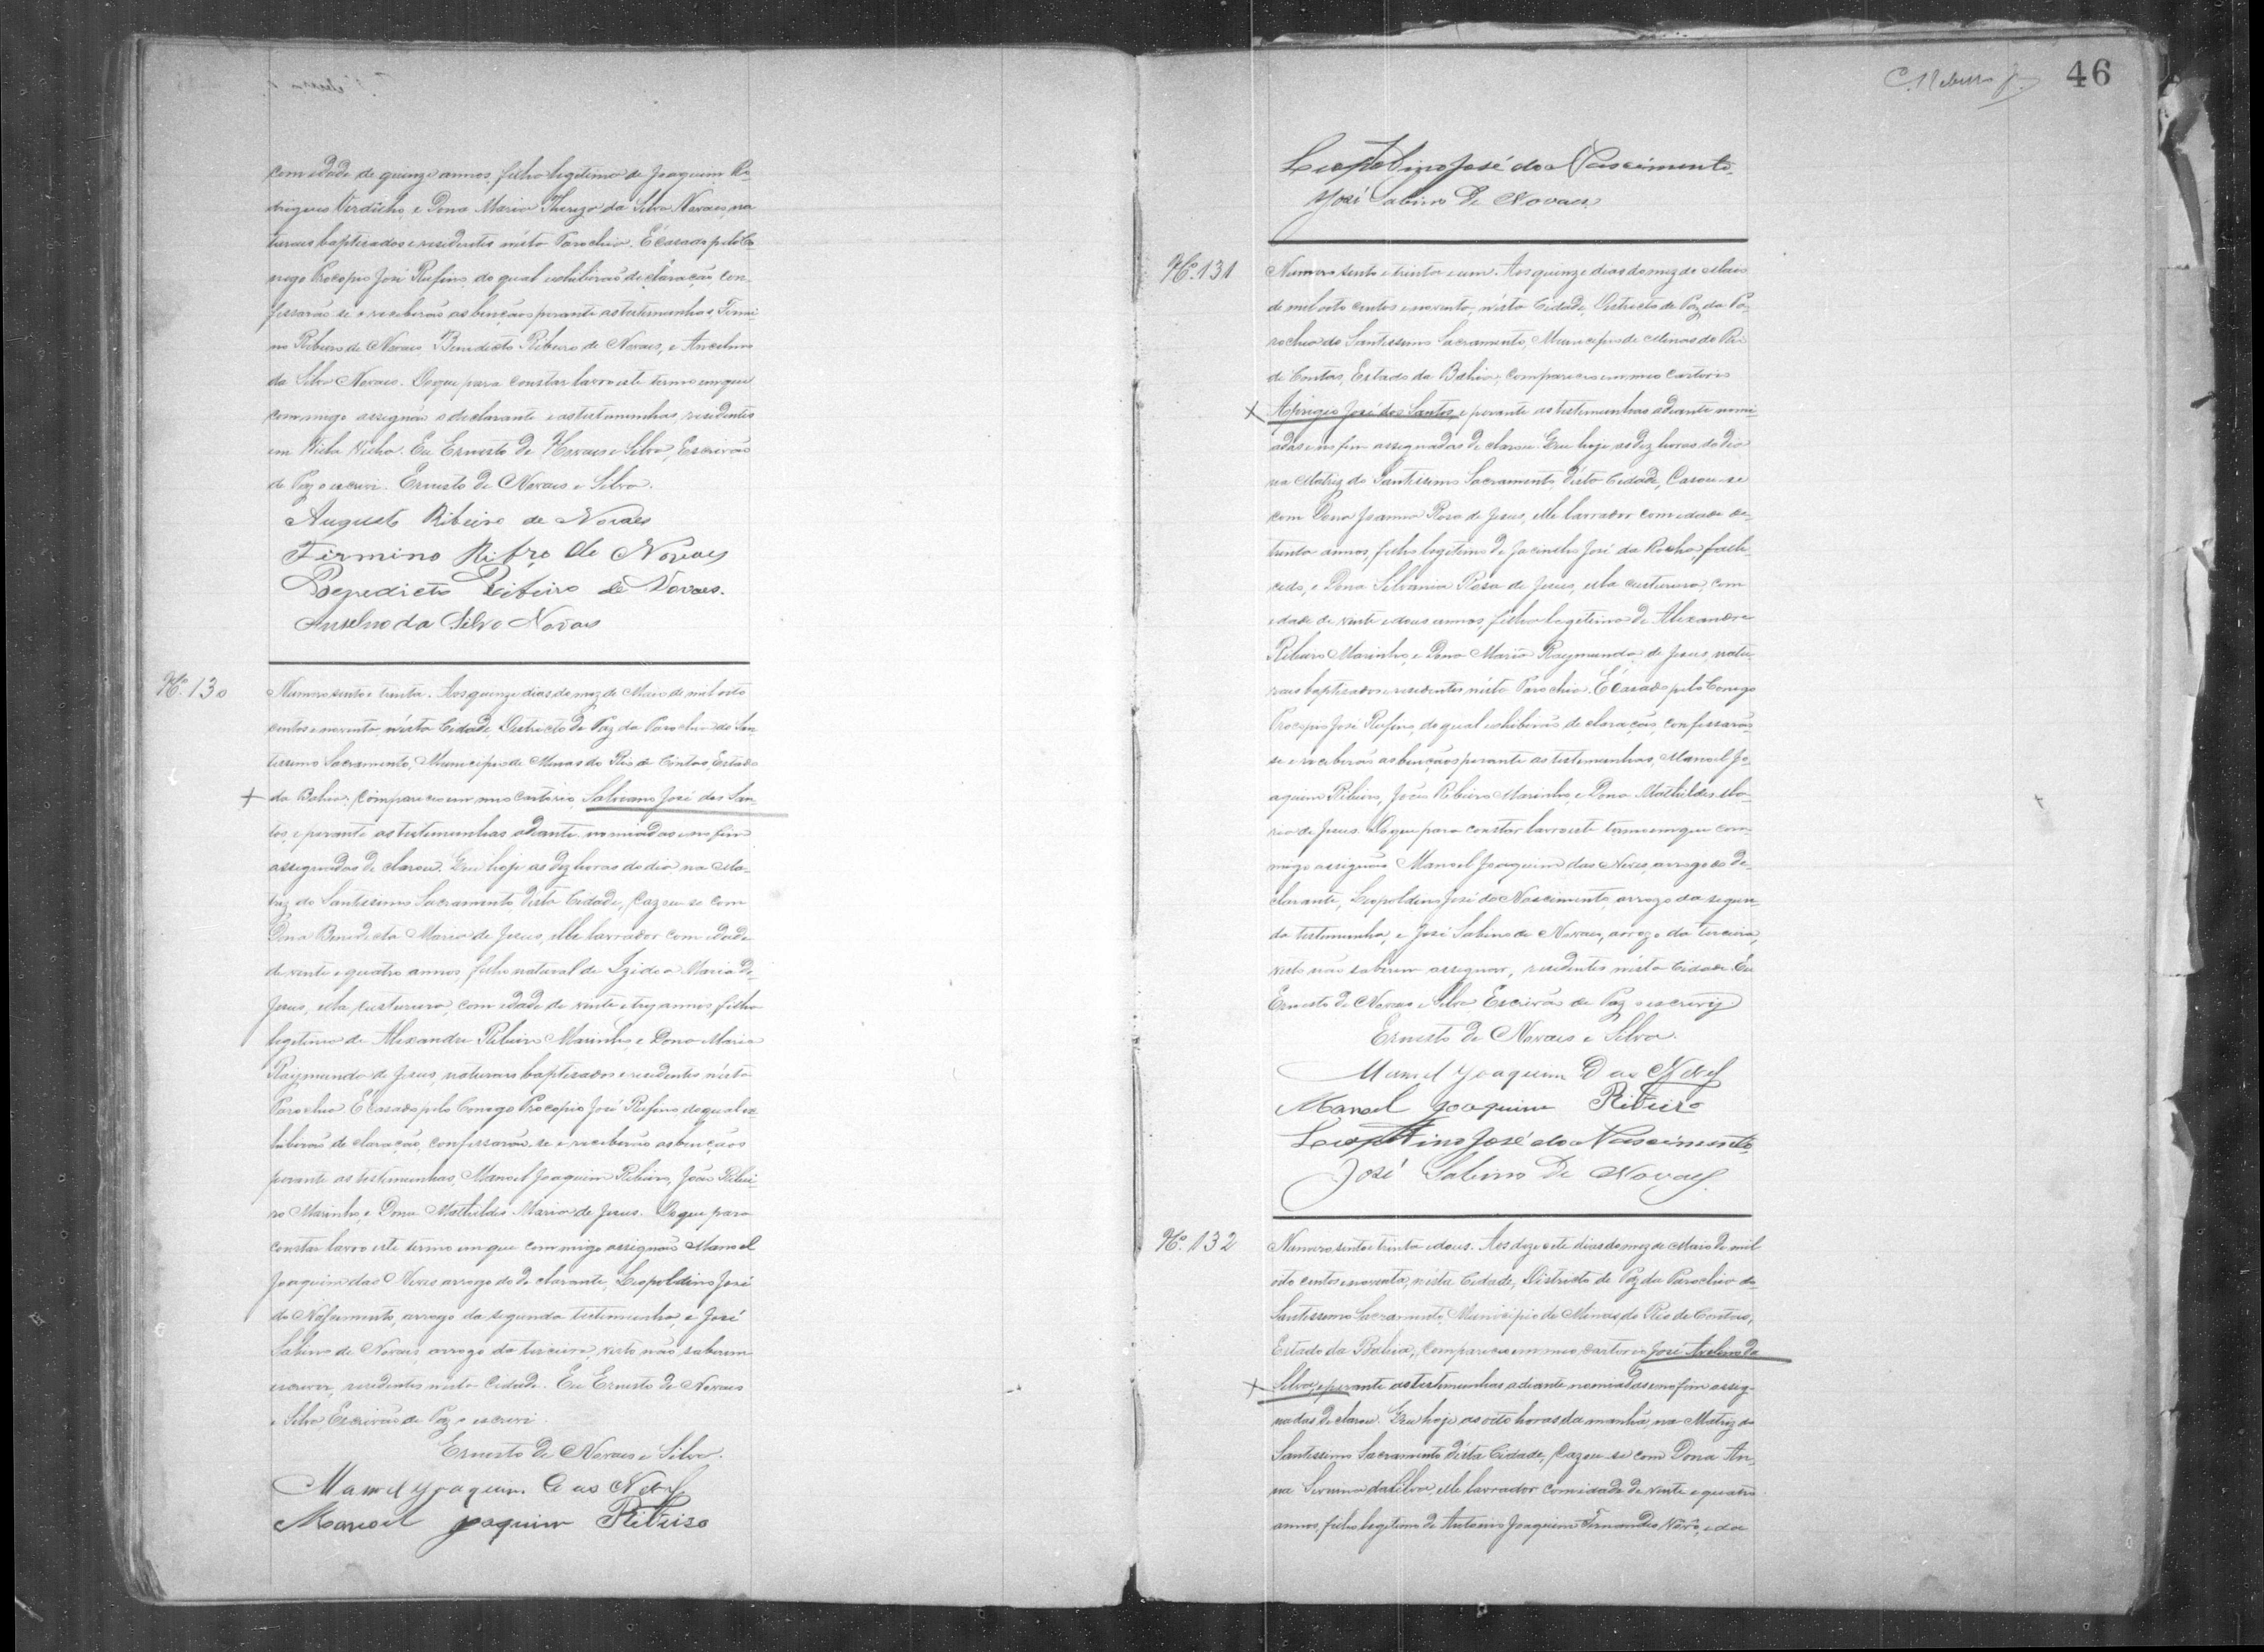 com idade de quinze annos, filha legitima de Joaquim Ro-
drigues Virdilho, e Dona Maria Thereza da Silva Novaes, na
turaes baptisados e residentes nésta Parochia. É casado pelo Co-
nego Procopio José Rufino, do qual exhibirão declaração, con-
fessarão se e receberão as bençãos perante as testemunhas, Firmi-
no Ribeiro de Novaes, Benedicto Ribeiro de Novaes, e Anselmo
da Silva Novaes. Do que para constar lavro este termo em que
commigo assignão o declarante e as testemunhas, residentes
em Villa Velha. Eu Ernesto de Novaes e Silva, Escrivão
de Paz o escrevi. Ernesto de Novaes e Silva.
Augusto Ribeiro de Novaes
Firmino Ribrº de Novaes
Benedicto Ribeiro de Novaes.
Anselmo da Silva Novaes
Nº 130
Numero sento e trinta. Aos quinze dias do mez de Maio de mil oito
centos e noventa nésta Cidade, Districto de Paz da Parochia do San
tissimo Sacramento, Municipio de Minas do Rio de Contas, Estado
da Bahia, compareceu em meu Cartorio Salviano José dos San-
tos, e perante as testemunhas adiante nomiadas e no fim
assignadas declarou. Que hoje as dez horas do dia na Ma-
triz do Santissimo Sacramento, désta Cidade, Cazou-se com
Dona Benedicta Maria de Jesus, elle lavrador com idade
de vinte e quatro annos, filho natural de Izidoa Maria de
Jesus, ella custureira, com idade de vinte e trez annos, filha
legitima de Alexandre Ribeiro Marinho, e Dona Maria
Raymunda de Jesus, naturaes baptisados e residentes nésta
Parochia. É casado pelo Conego Procopio José Rufino do qual ex
hibirão declaração, confessarão-se e receberão as bençãos
perante as testemunhas, Manoel Joaquim Ribeiro, João Ribei-
ro Marinho, e Dona Mathildes Maria de Jesus. Do que para
constar lavro este termo em que commigo assignão Manoel
Joaquim das Neves arrogo do declarante, Leopoldino José
do Nascimento, arrogo da segunda testemunha, e José
Sabino de Novaes, arrogo da terceira, visto não saberem
escrever, residentes nésta Cidade. Eu Ernesto de Novaes
e Silva Escrivão de Paz o escrevi.
Ernesto de Novaes e Silva.
Manoel Joaquim das Neves
Manoel Joaquim Ribeiro
46
Leopoldino José do Nascimento.
José Sabino de Novaes
Nº 131
Numero sento e trinta e um. Aos quinze dias do mez de Maio
de mil oito centos e noventa, nésta Cidade, Districto de Paz da Pa-
rochia do Santissimo Sacramento, Municipio de Minas do Rio
de Contas, Estado da Bahia, compareceu em meu Cartorio
Aprigio José dos Santos, e perante as testemunhas adiante nomi-
adas e no fim assignadas declarou. Que hoje as dez horas do dia
na Matriz do Santissimo Sacramento, désta Cidade, Casou-se
com Dona Joanna Rosa de Jesus, elle lavrador com idade de
trinta annos, filho legitimo de Jacintho José da Rocha falle
cido, e Dona Silvania Rosa de Jesus, ella custureira, com
idade de vinte e dous annos, filha legitima de Alexandre
Ribeiro Marinho, e Dona Maria Raymunda de Jesus, natu-
raes baptisados e residentes nésta Parochia. É casado pelo Conego
Procopio José Rufino, do qual exhibirão declaração, confessarão
se e receberão as bençãos perante as testemunhas, Manoel Jo-
aquim Ribeiro, João Ribeiro Marinho, e Dona Mathildes Ma-
ria de Jesus. Do que para constar lavro este termo em que com-
migo assignão Manoel Joaquim das Neves, arrogo do de-
clarante, Leopoldino José do Nascimento, arrogo da segun-
da testemunha, e José Sabino de Novaes, arrogo da terceira,
visto não saberem assignar, residentes nésta Cidade. Eu
Ernesto de Novaes e Silva Escrivão de Paz o escrevy
Ernesto de Novaes e Silva.
Manoel Joaquim Das Neves
Manoel Joaquim Ribeiro
Leopoldino José do Nascimento,
José Sabino de Novaes.
Nº 132
Numero sento e trinta e dous. Aos dezesete dias do mez de Maio de mil
oito centos e noventa, nésta Cidade, Districto de Paz da Parochia do
Santissimo Sacramento, Municipio de Minas do Rio de Contas,
Estado da Bahia, compareceu em meu cartorio José Avelino da
Silva, e perante as testemunhas adiante nomiadas e no fim assig-
nadas declarou. Que hoje as oito horas da manhã, na Matriz do
Santissimo Sacramento désta Cidade, Cazou-se com Dona An-
na da Silva, elle lavrador com idade de vinte e quatro
annos, filho legitimo de Antonio Joaquim Fernandes e da